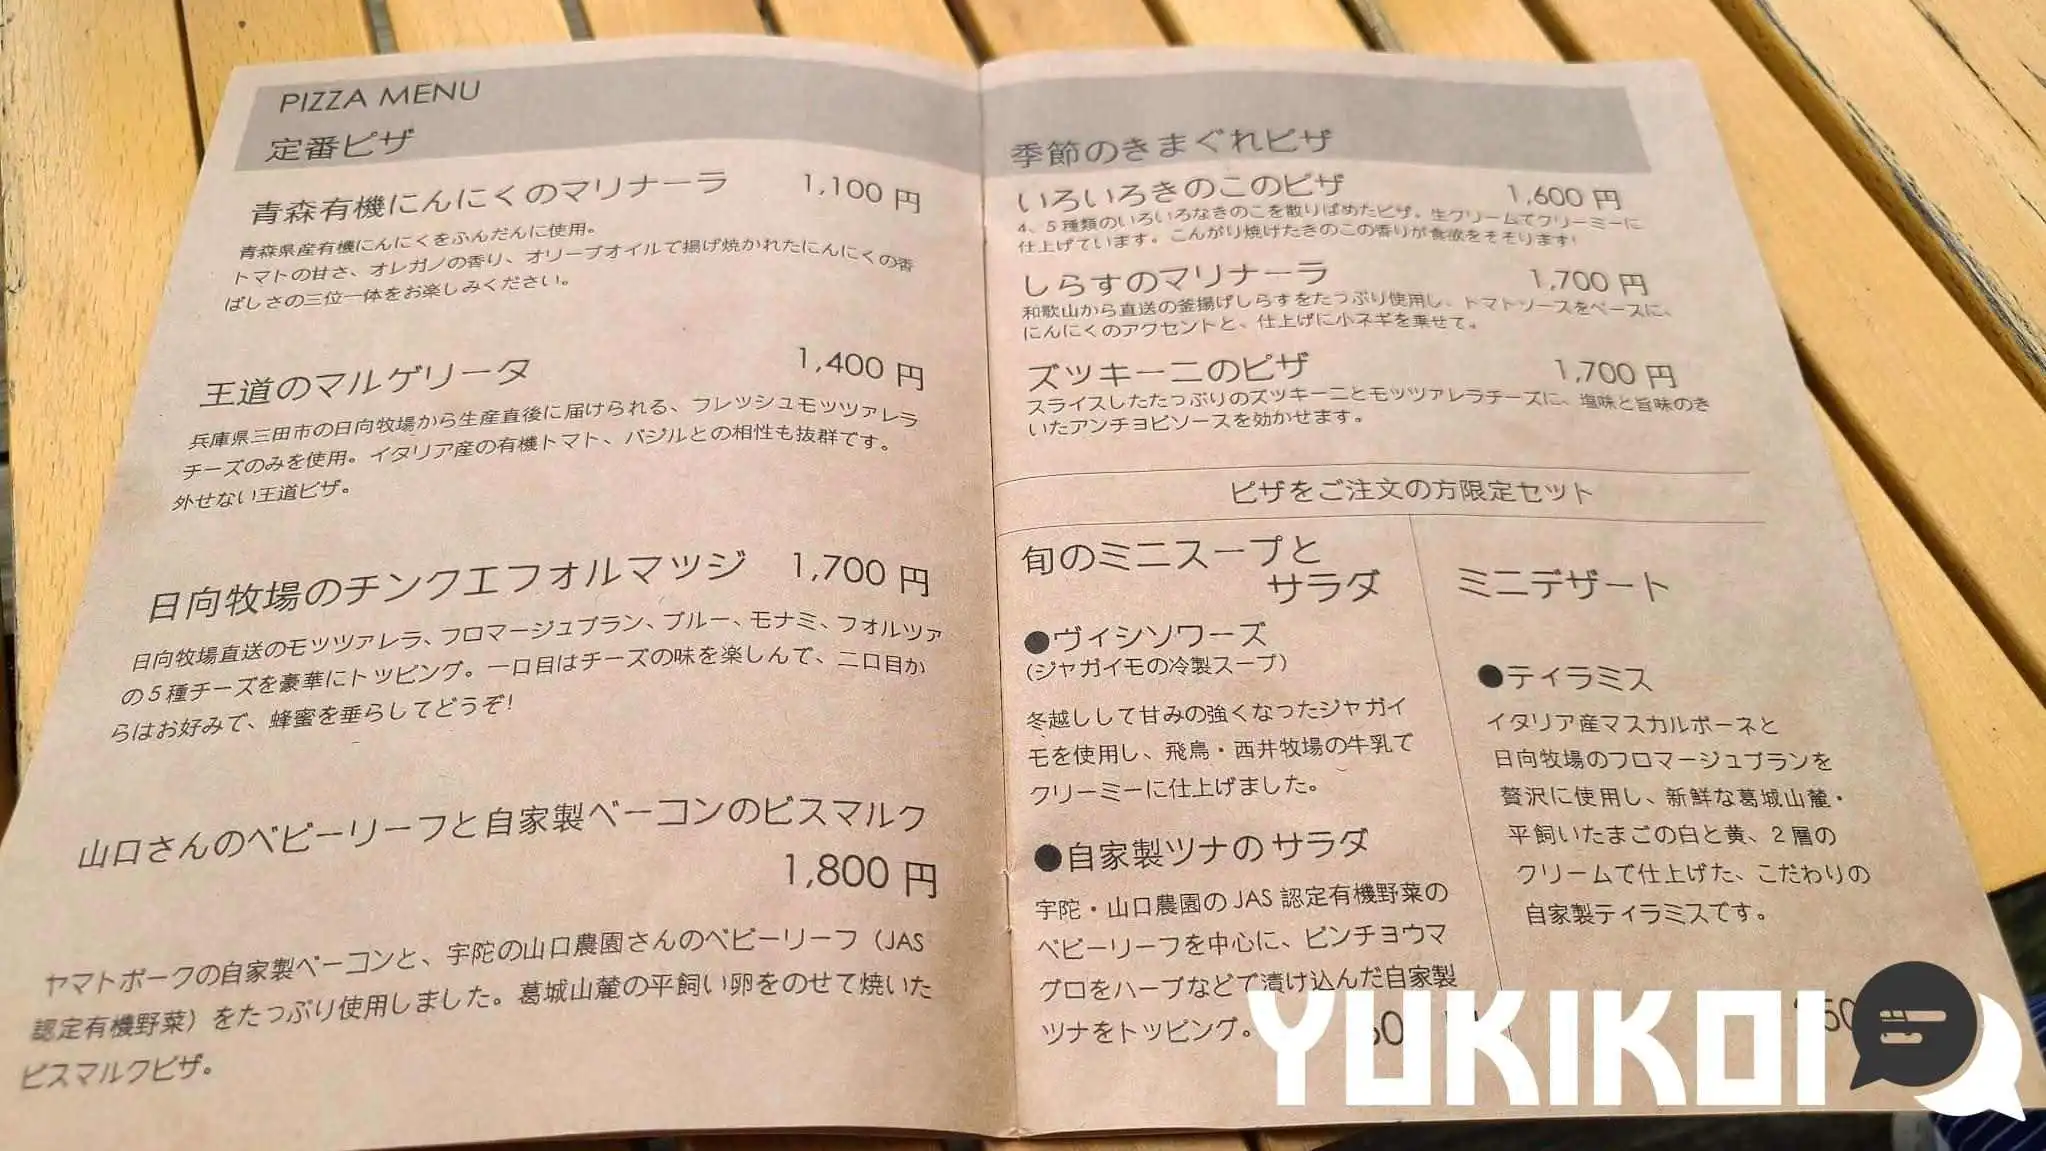 PIZZA MENU
定番ピザ
青森有機にんにくのマリナーラ 1,100 円
青森県産有機にんにくをふんだんに使用。
トマトの甘さ、オレガノの香り、オリーブオイルで揚げ焼かれたにんにくの香
ばしさの三位一体をお楽しみください。
王道のマルゲリータ 1,400 円
兵庫県三田市の日向牧場から生産直後に届けられる、フレッシュモッツァレラ
チーズのみを使用。イタリア産の有機トマト、バジルとの相性も抜群です。
外せない王道ピザ。
日向牧場のチンクエフォルマッジ 1,700 円
日向牧場直送のモッツァレラ、フロマージュブラン、ブルー、モナミ、フォルツァ
の5種チーズを豪華にトッピング。一口目はチーズの味を楽しんで、二口目か
らはお好みで、蜂蜜を垂らしてどうぞ!
山口さんのベビーリーフと自家製ベーコンのビスマルク
1,800 円
ヤマトポークの自家製ベーコンと、宇陀の山口農園さんのベビーリーフ（JAS
認定有機野菜）をたっぷり使用しました。葛城山麓の平飼い卵をのせて焼いた
ビスマルクピザ。
季節のきまぐれピザ
いろいろきのこのピザ 1,600 円
4、5種類のいろいろなきのこを散りばめたピザ。生クリームでクリーミーに
仕上げています。こんがり焼けたきのこの香りが食欲をそそります!
しらすのマリナーラ 1,700 円
和歌山から直送の釜揚げしらすをたっぷり使用し、トマトソースをベースに、
にんにくのアクセントと、仕上げに小ネギを乗せて。
ズッキーニのピザ 1,700 円
スライスしたたっぷりのズッキーニとモッツァレラチーズに、塩味と旨味のき
いたアンチョビソースを効かせます。
ピザをご注文の方限定セット
旬のミニスープと
サラダ
●ヴィシソワーズ
(ジャガイモの冷製スープ)
冬越しして甘みの強くなったジャガイ
モを使用し、飛鳥・西井牧場の牛乳で
クリーミーに仕上げました。
●自家製ツナのサラダ
宇陀・山口農園のJAS認定有機野菜の
ベビーリーフを中心に、ビンチョウマ
グロをハーブなどで漬け込んだ自家製
ツナをトッピング。
ミニデザート
●ティラミス
イタリア産マスカルポーネと
日向牧場のフロマージュブランを
贅沢に使用し、新鮮な葛城山麓・
平飼いたまごの白と黄、2層の
クリームで仕上げた、こだわりの
自家製ティラミスです。
YUKIKOI